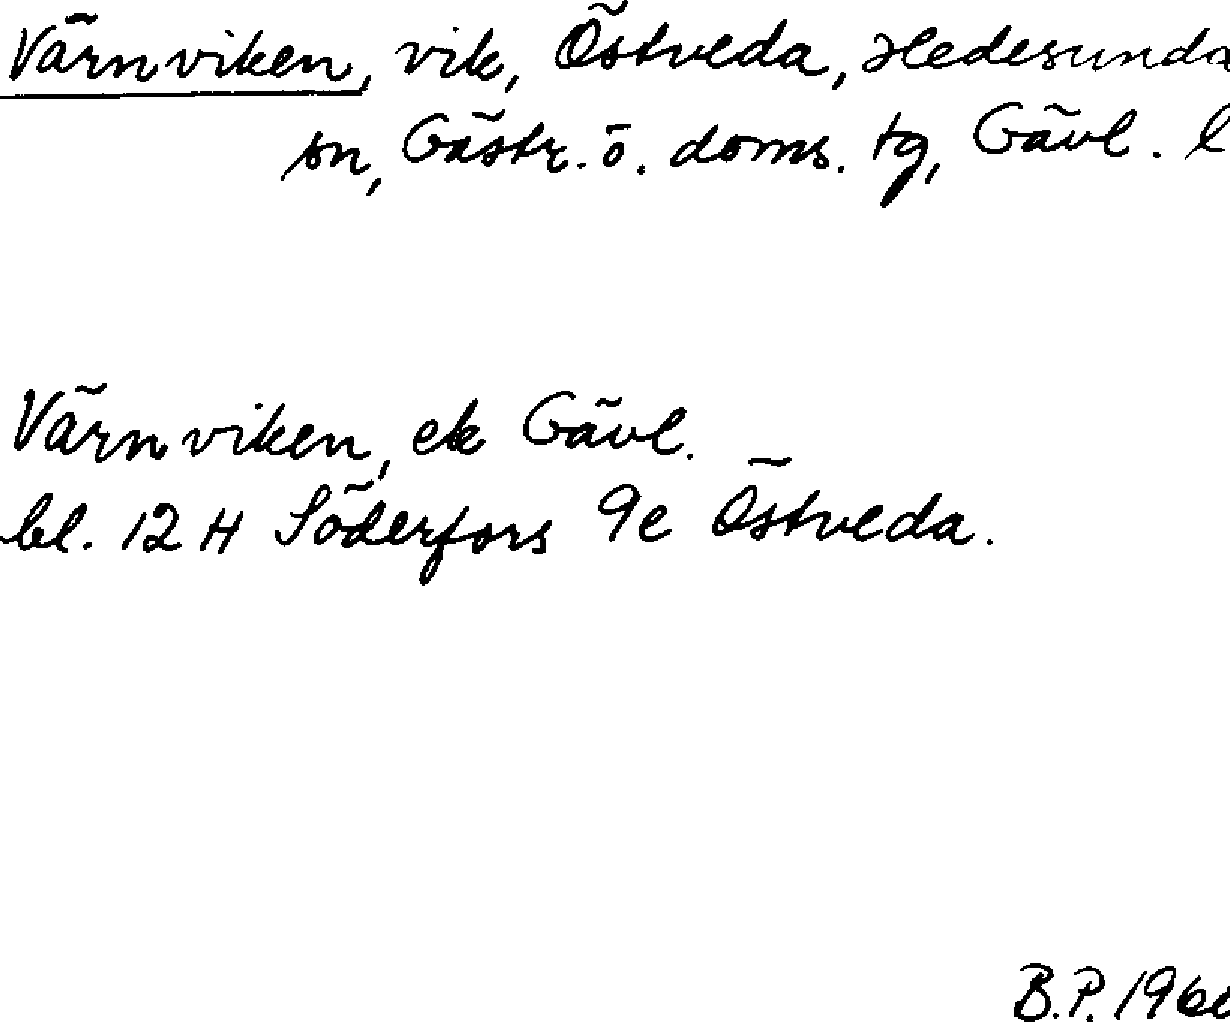 Värnviken, vik, Östveda, Hedesunda
sn, Gästr. ö. doms. tg, Gävl. l
Värnviken, ek Gävl.
bl. 12 H Söderfors 9e Östveda.
B.P.